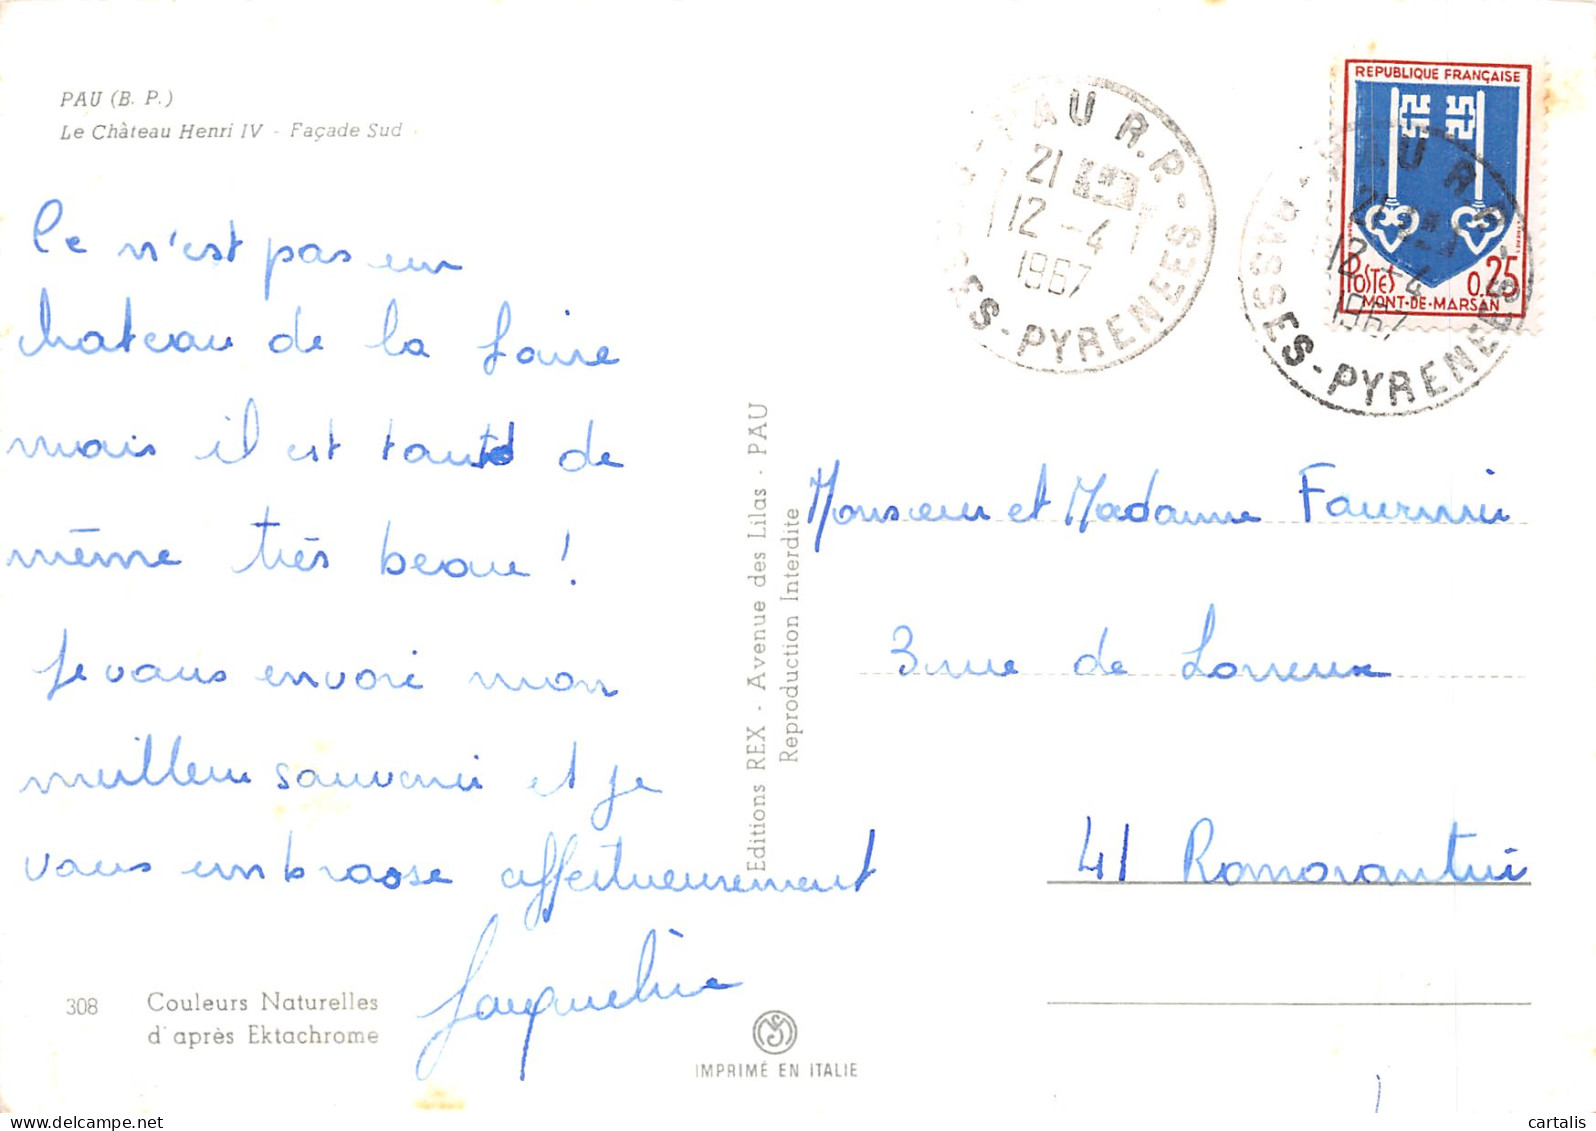 PAU (B. P.)
Le Château Henri IV - Façade Sud
Ce n'est pas un
chateau de la Loire
mais il est tout de
même très beau !
Je vous envoie mon
meilleur souvenir et je
vous embrasse affectueusement
Jacqueline
308 Couleurs Naturelles
d'après Ektachrome
Editions REX - Avenue des Lilas - PAU
Reproduction Interdite
IMPRIMÉ EN ITALIE
PAU R.P.
21
12 - 4
1967
BASSES-PYRENEES
REPUBLIQUE FRANÇAISE
POSTES 0.25
MONT-DE-MARSAN
PAU R.P.
12 - 4
1967
BASSES-PYRENEES
Monsieur et Madame
3 rue de
41 Romorantin
cartalis